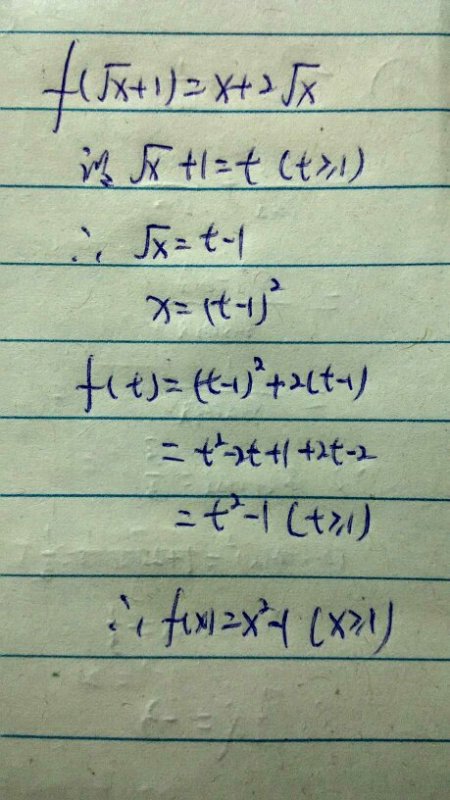 f(√x+1)=x+2√x
设 √x+1=t (t≥1)
∴ √x=t-1
x=(t-1)²
f(t)=(t-1)²+2(t-1)
=t²-2t+1+2t-2
=t²-1 (t≥1)
∴ f(x)=x²-1 (x≥1)